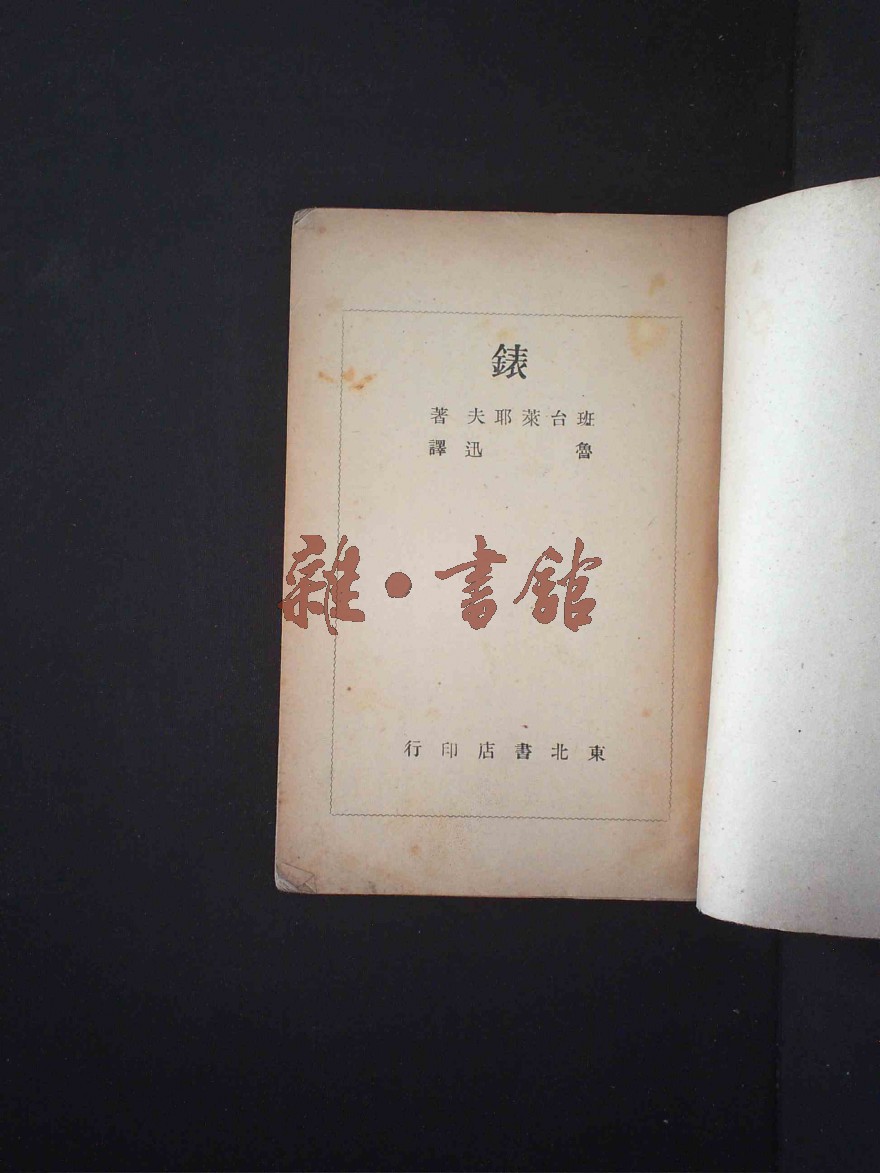 錶
班台萊耶夫著
魯迅譯
雜·書館
東北書店印行